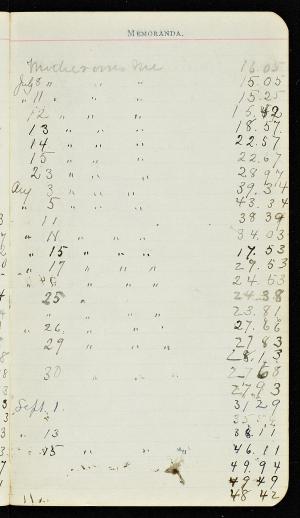 MEMORANDA.
Mother owes me 16.05
July 8 " " " 15.05
" 11 " " " 15.25
12 " " " 15.42
13 " " " 18.57.
14 " " " 22.57
15 " " " 22.67
23 " " " 28.97
Aug 3 " " " 39.34
" 5 " " " 43.34
11 38 39
" 11 " " " 34.03
" 15 " " " 17.53
" 17 " " " 29.53
24.53
25 " 24.38
" " " " 23.81
" 26. " " " 27.66
" 29 " " " 27 83
28.13
30 " " " 27 68
27.93
Sept. 1. 31 29
" 13 38.11
" 15 46.11
49.94
49 49
48 42